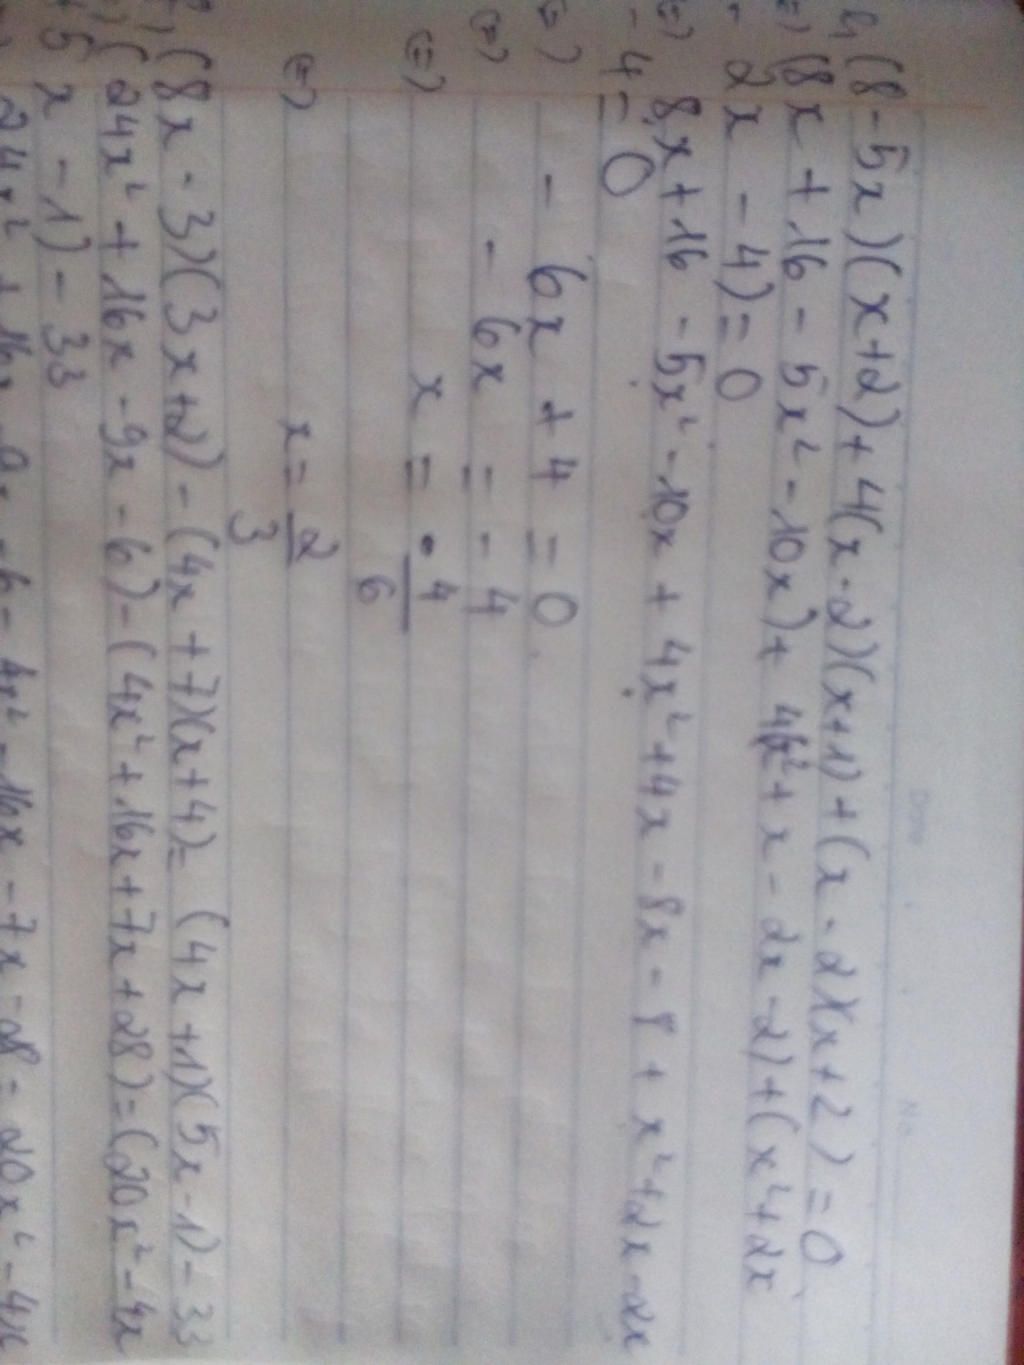 (8-5x)(x+2)+4(x-2)(x+1)+(x-2)(x+2)=0
(8x+16-5x²-10x)+4(x²+x-2x-2)+(x²+2x
-2x-4)=0
8x+16-5x²-10x+4x²+4x-8x-8+x²+2x-2x
-4=0
(=) -6x+4=0
(=) -6x=-4
(=) x=4/6
(=) x=2/3
(8x-3)(3x+2)-(4x+7)(x+4)=(4x+1)(5x-1)-33
(24x²+16x-9x-6)-(4x²+16x+7x+28)=(20x²-4x
+5x-1)-33
24x²+16x-9x-6-4x²-16x-7x-28=20x²-4x